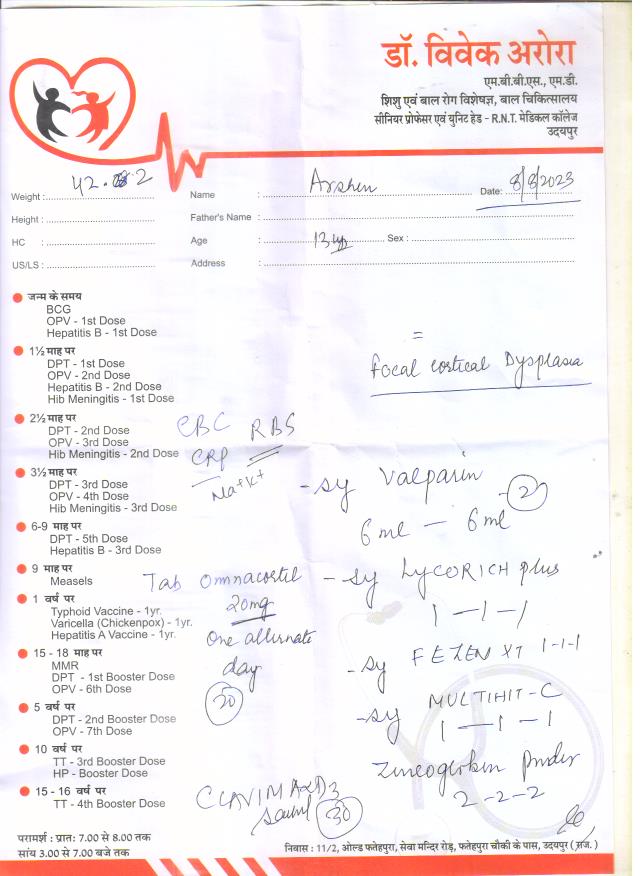 डॉ. विवेक अरोरा
एम.बी.बी.एस., एम.डी.
शिशु एवं बाल रोग विशेषज्ञ, बाल चिकित्सालय
सीनियर प्रोफेसर एवं युनिट हेड - R.N.T. मेडिकल कॉलेज
उदयपुर
Weight : 42. 2
Name : Arshen
Date: 8/8/2023
Height :
Father's Name :
HC :
Age : 13 yr
Sex :
US/LS :
Address :
जन्म के समय
BCG
OPV - 1st Dose
Hepatitis B - 1st Dose
1½ माह पर
DPT - 1st Dose
OPV - 2nd Dose
Hepatitis B - 2nd Dose
Hib Meningitis - 1st Dose
2½ माह पर
DPT - 2nd Dose
OPV - 3rd Dose
Hib Meningitis - 2nd Dose
3½ माह पर
DPT - 3rd Dose
OPV - 4th Dose
Hib Meningitis - 3rd Dose
6-9 माह पर
DPT - 5th Dose
Hepatitis B - 3rd Dose
9 माह पर
Measels
1 वर्ष पर
Typhoid Vaccine - 1yr.
Varicella (Chickenpox) - 1yr.
Hepatitis A Vaccine - 1yr.
15 - 18 माह पर
MMR
DPT - 1st Booster Dose
OPV - 6th Dose
5 वर्ष पर
DPT - 2nd Booster Dose
OPV - 7th Dose
10 वर्ष पर
TT - 3rd Booster Dose
HP - Booster Dose
15 - 16 वर्ष पर
TT - 4th Booster Dose
=
Focal Cortical Dysplasia
CBC RBS
CRP
Na+K+
- sy Valparin
6 ml - 6 ml 2
Tab Omnacortil
20mg
One alternate
day
20
- sy LYCORICH plus
1 - 1 - 1
- sy FEZEN XT 1-1-1
- sy MULTIHIT - C
1 - 1 - 1
2 - 2 - 2
30
परामर्श : प्रातः 7.00 से 8.00 तक
सांय 3.00 से 7.00 बजे तक
निवास : 11/2, ओल्ड फतेहपुरा, सेवा मन्दिर रोड़, फतेहपुरा चौकी के पास, उदयपुर (राज.)